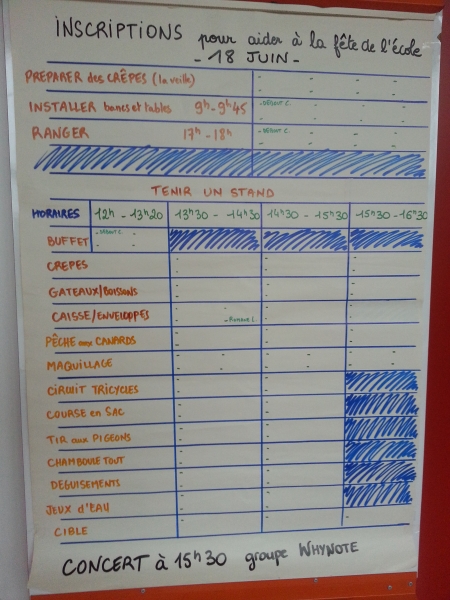 INSCRIPTIONS pour aider à la fête de l'école
- 18 JUIN -
PRÉPARER des CRÊPES (la veille)
INSTALLER bancs et tables 9h - 9h45 - DÉBUT C.
RANGER 17h - 18h - DÉBUT C.
TENIR UN STAND
HORAIRES 12h - 13h20 13h30 - 14h30 14h30 - 15h30 15h30 - 16h30
BUFFET - DÉBUT C.
CRÊPES
GATEAUX/BOISSONS
CAISSE/ENVELOPPES
PÊCHE aux CANARDS
MAQUILLAGE
CIRCUIT TRICYCLES
COURSE en SAC
TIR aux PIGEONS
CHAMBOULE TOUT
DEGUISEMENTS
JEUX d'EAU
CIBLE
CONCERT à 15h30 groupe WHYNOTE